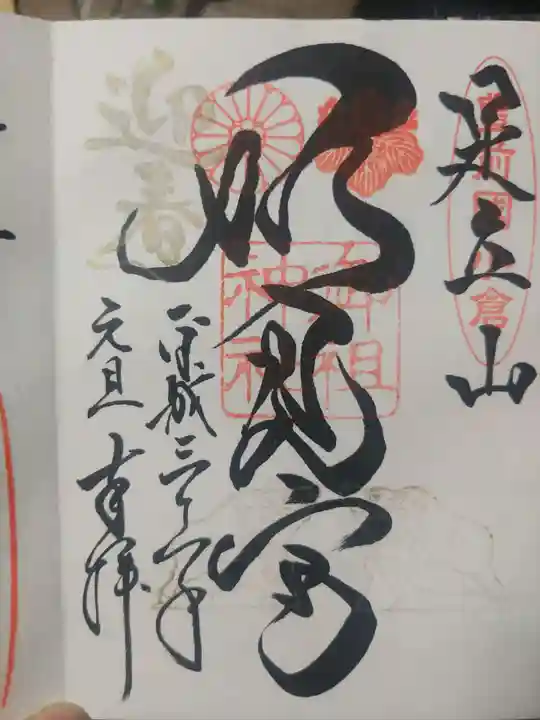 足立山
豊前國小倉
妙見宮
御祖
神社
平成三十一年
元旦 奉拝
迎春